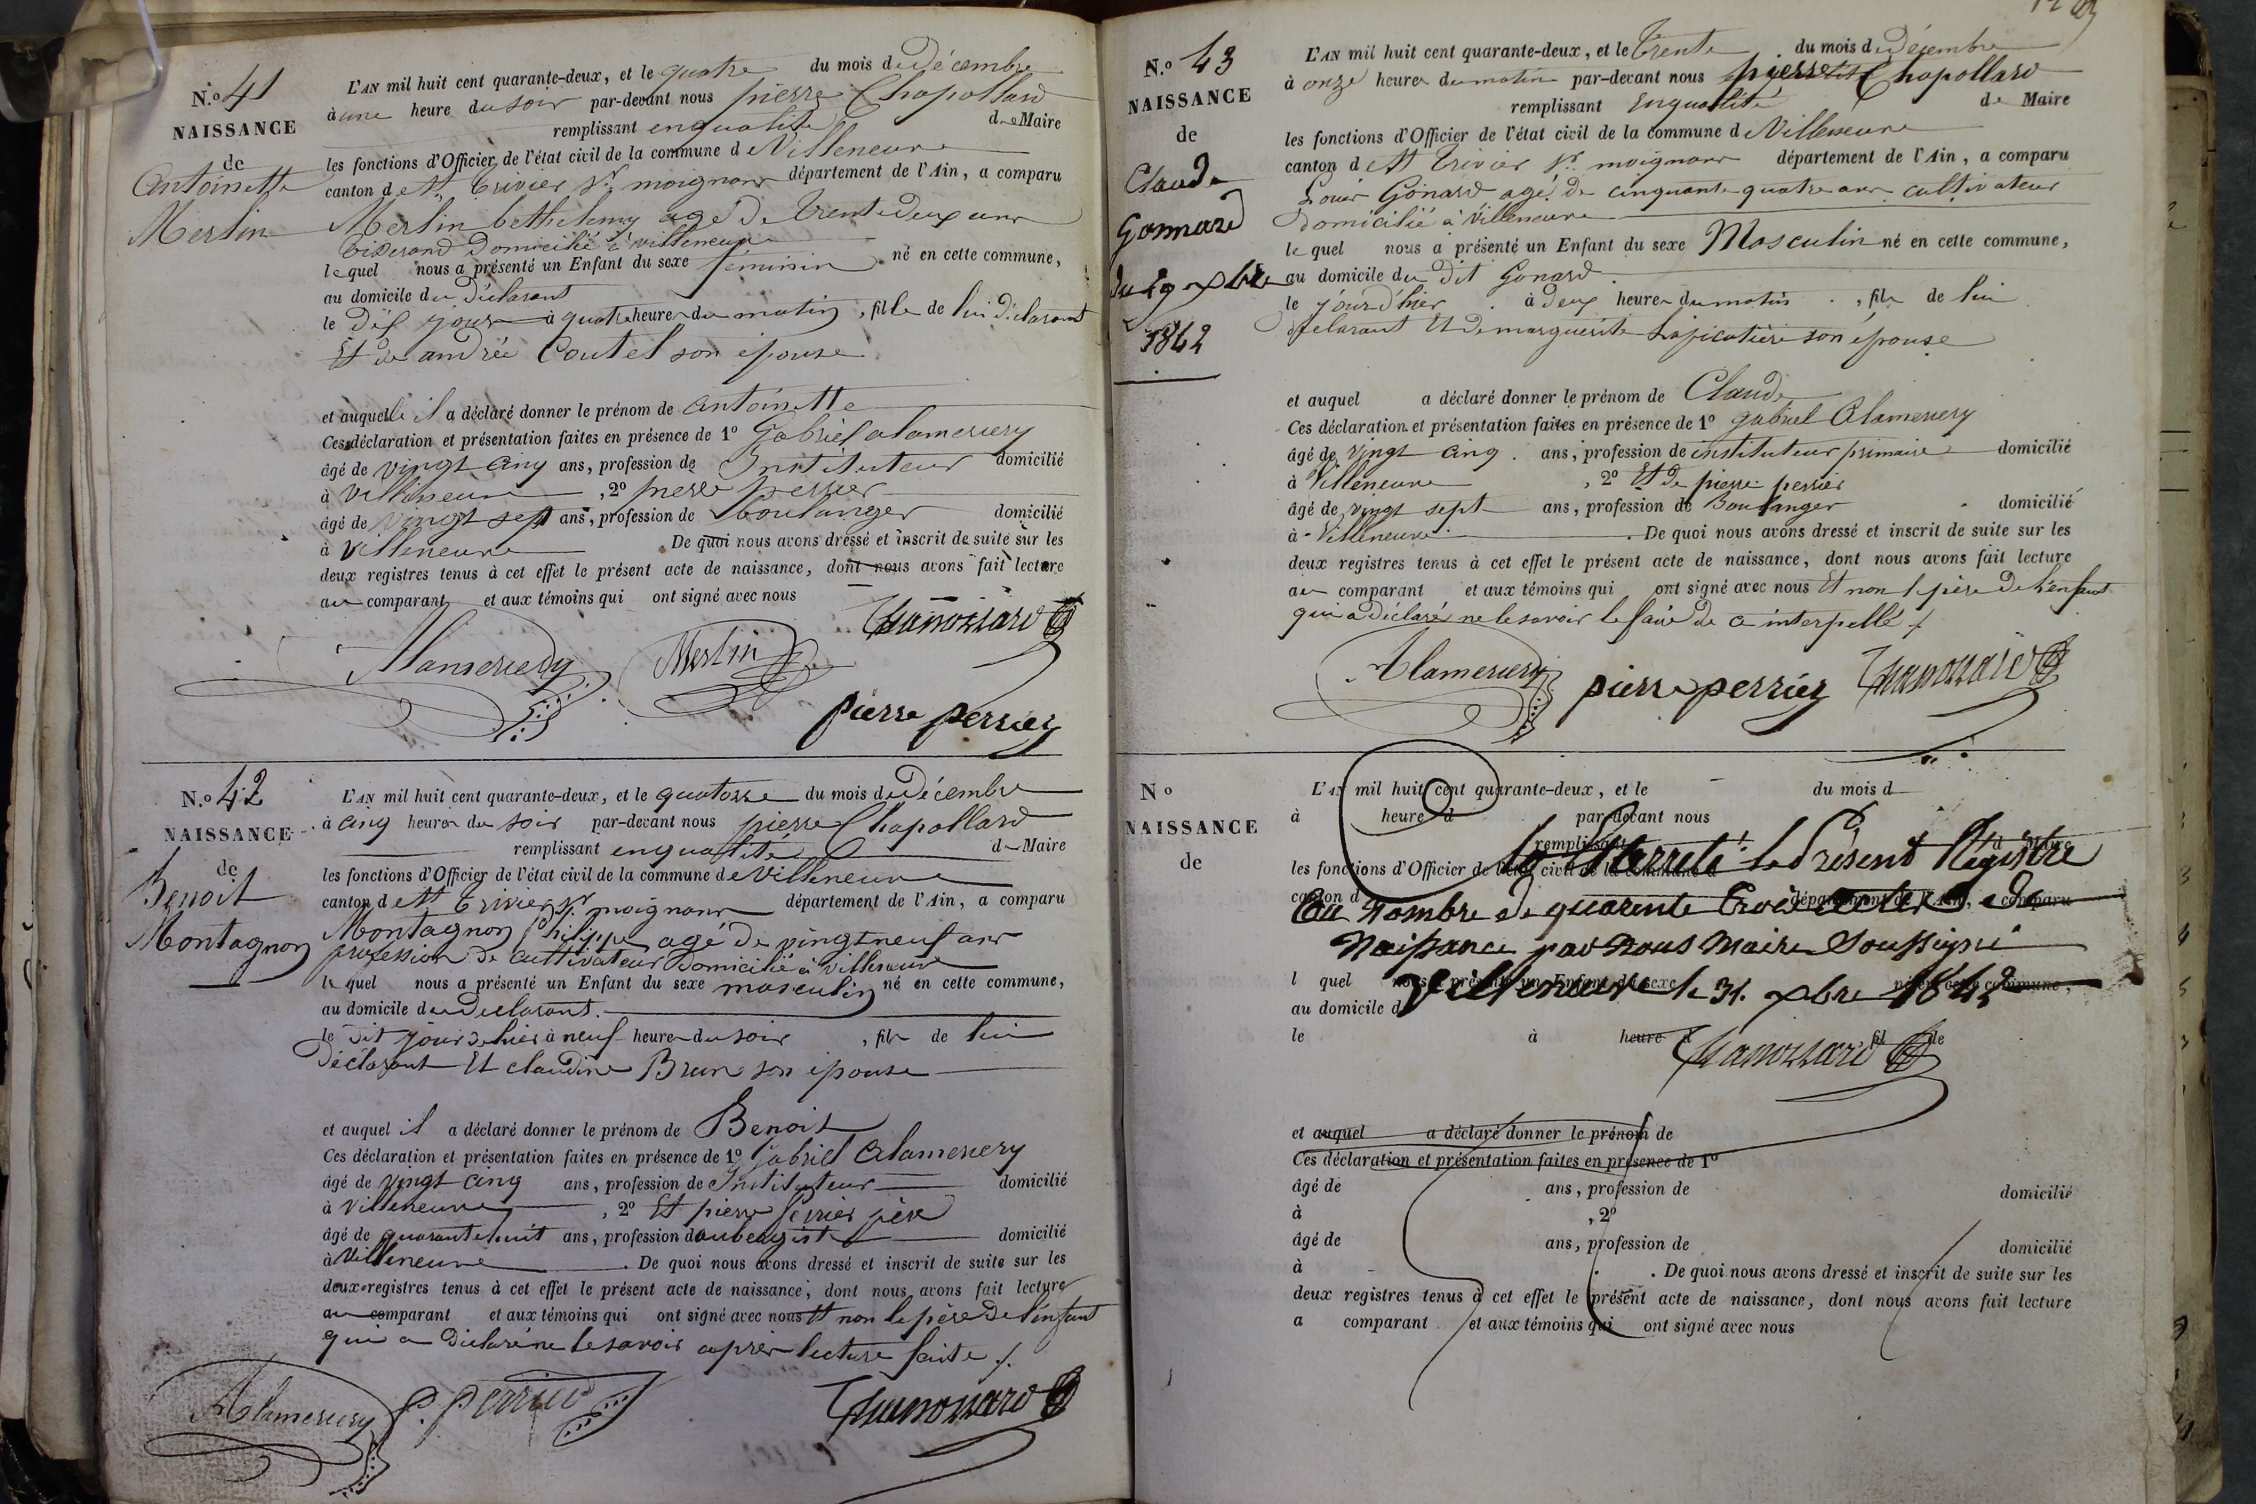 N.º 41
NAISSANCE
de
Antoinette
Merlin
L'AN mil huit cent quarante-deux, et le quatre du mois de décembre
à une heure du soir par-devant nous pierre Chapollard
remplissant enqualité de Maire
les fonctions d'Officier de l'état civil de la commune de Villeneuve
canton de St Trivier Sr moignans département de l'Ain, a comparu
Merlin bethelemy agé de trentedeux ans
tisserand domicilié à villeneuve
lequel nous a présenté un Enfant du sexe féminin né en cette commune,
au domicile du déclarant
le dit jour à quatre heures du matin, fille de lui déclarant
Et de andrée Coutel son épouse
et auquelle il a déclaré donner le prénom de antoinette
Ces déclaration et présentation faites en présence de 1º Gabriel alamercery
âgé de vingt cinq ans, profession de Instituteur domicilié
à Villeneuve, 2º pierre perrier
âgé de vingt sept ans, profession de boulanger domicilié
à Villeneuve. De quoi nous avons dressé et inscrit de suite sur les
deux registres tenus à cet effet le présent acte de naissance, dont nous avons fait lecture
au comparant et aux témoins qui ont signé avec nous
Alamercery Merlin Chapollard
pierre perrier
N.º 42
NAISSANCE
de
Benoit
Montagnon
L'AN mil huit cent quarante-deux, et le quatorze du mois de décembre
à cinq heures du soir par-devant nous pierre Chapollard
remplissant enqualité de Maire
les fonctions d'Officier de l'état civil de la commune de Villeneuve
canton de St Trivier Sr moignans département de l'Ain, a comparu
Montagnon Philippe agé de vingt neuf ans
profession de cultivateur domicilié à villeneuve
lequel nous a présenté un Enfant du sexe masculin né en cette commune,
au domicile du déclarant.
le dit jour de hier à neuf heures du soir, fils de lui
déclarant Et claudine Brun son épouse
et auquel il a déclaré donner le prénom de Benoit
Ces déclaration et présentation faites en présence de 1º Gabriel alamercery
âgé de vingt cinq ans, profession de Instituteur domicilié
à Villeneuve, 2º Et pierre Perrier père
âgé de quarante huit ans, profession d'aubergiste domicilié
à Villeneuve. De quoi nous avons dressé et inscrit de suite sur les
deux registres tenus à cet effet le présent acte de naissance, dont nous avons fait lecture
au comparant et aux témoins qui ont signé avec nous Et non le père de l'enfant
qui a déclaré ne le savoir après lecture faite /.
Alamercery P. Perrier Chapollard
N.º 43
NAISSANCE
de
Claude
Gonnard
du 29 xbre
1842
L'AN mil huit cent quarante-deux, et le trente du mois de décembre
à onze heures du matin par-devant nous pierre Chapollard
remplissant Enqualité de Maire
les fonctions d'Officier de l'état civil de la commune de Villeneuve
canton de St Trivier Sr moignans département de l'Ain, a comparu
Louis Gonard agé de cinquante quatre ans cultivateur
domicilié à Villeneuve
lequel nous a présenté un Enfant du sexe Masculin né en cette commune,
au domicile du dit Gonard
le jour d'hier à deux heures du matin, fils de lui
déclarant Et de marguerite Lapicotière son épouse
et auquel a déclaré donner le prénom de Claude
Ces déclaration et présentation faites en présence de 1º gabriel Alamercery
âgé de vingt cinq ans, profession de instituteur primaire domicilié
à Villeneuve, 2º Et de pierre perrier
âgé de vingt sept ans, profession de Boulanger domicilié
à Villeneuve. De quoi nous avons dressé et inscrit de suite sur les
deux registres tenus à cet effet le présent acte de naissance, dont nous avons fait lecture
au comparant et aux témoins qui ont signé avec nous Et non le père de l'enfant
qui a déclaré ne le savoir le faire de ce interpellé /.
Alamercery pierre perrier Chapollard
Nº
NAISSANCE
de
L'AN mil huit cent quarante-deux, et le du mois d
à heure d par-devant nous
remplissant d Maire
Clos et Arreté le Présent Régistre
les fonctions d'Officier de l'état civil de la commune d
canton d département de l'Ain, a comparu
Au Nombre de quarente trois actes de
Naissance par Nous Maire Soussigné
l quel nous a présenté un Enfant du sexe né en cette commune,
Villeneuve le 31. xbre 1842
au domicile d
le à heure d fil de
Chapollard
et auquel a déclaré donner le prénom de
Ces déclaration et présentation faites en présence de 1º
âgé de ans, profession de domicilié
à , 2º
âgé de ans, profession de domicilié
à . De quoi nous avons dressé et inscrit de suite sur les
deux registres tenus à cet effet le présent acte de naissance, dont nous avons fait lecture
a comparant et aux témoins qui ont signé avec nous